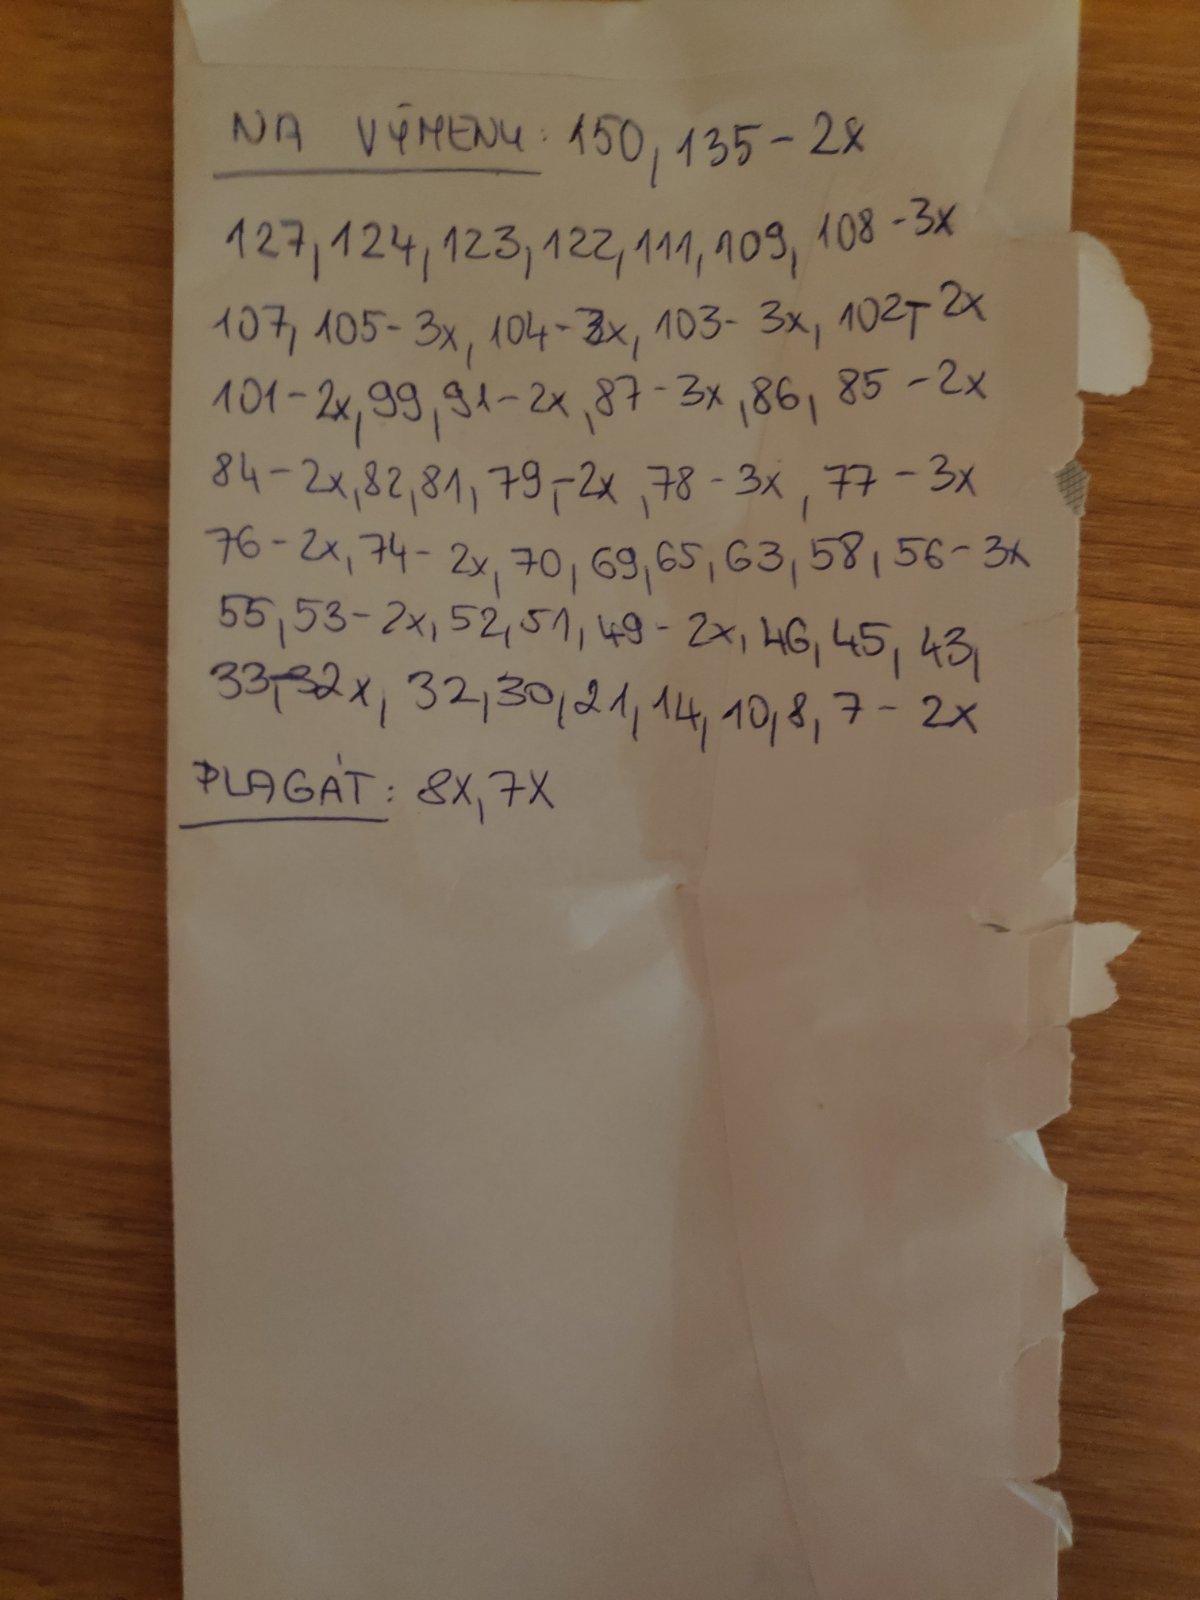 NA VÝMENU: 150, 135 - 2x
127, 124, 123, 122, 111, 109, 108 - 3x
107, 105 - 3x, 104 - 3x, 103 - 3x, 102, - 2x
101 - 2x, 99, 91 - 2x, 87 - 3x, 86, 85 - 2x
84 - 2x, 82, 81, 79, - 2x, 78 - 3x, 77 - 3x
76 - 2x, 74 - 2x, 70, 69, 65, 63, 58, 56 - 3x
55, 53 - 2x, 52, 51, 49 - 2x, 46, 45, 43,
33, 32, 30, 21, 14, 10, 8, 7 - 2x
PLAGÁT: 8X, 7X